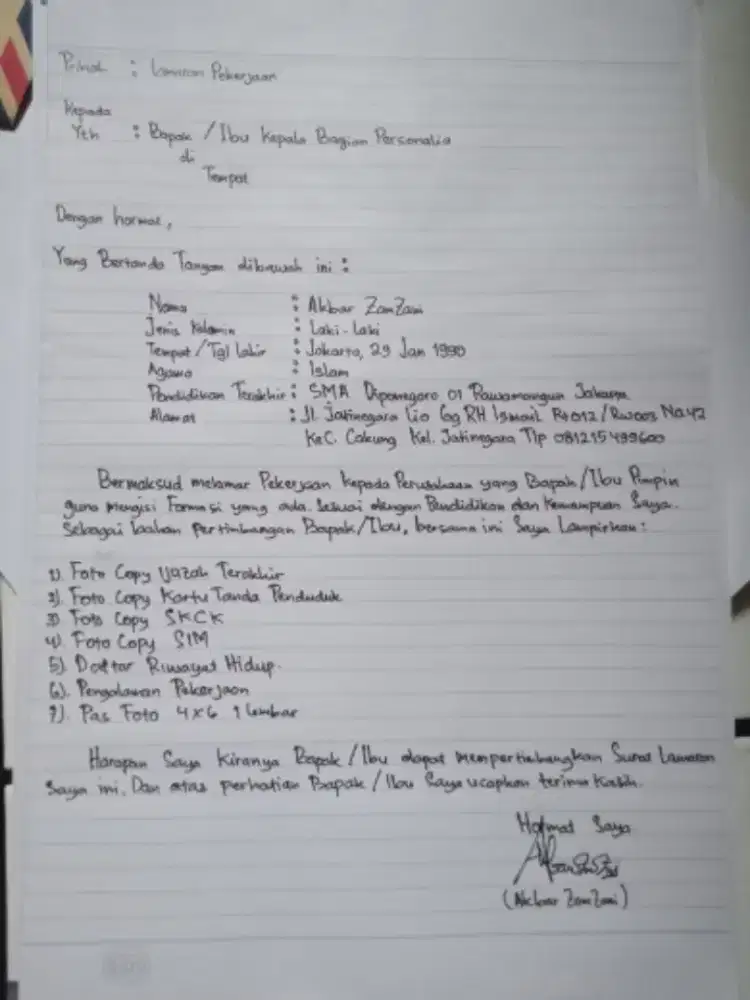 Prihal : Lamaran Pekerjaan
Kepada
Yth : Bapak / Ibu Kepala Bagian Personalia
di
Tempat
Dengan hormat,
Yang Bertanda Tangan dibawah ini :
Nama : Akbar ZamZami
Jenis Kelamin : Laki-Laki
Tempat / Tgl lahir : Jakarta, 29 Jan 1990
Agama : Islam
Pendidikan Terakhir : SMA Diponegoro 01 Rawamangun Jakarta
Alamat : Jl. Jatinegara Lio Gg RH Ismail Rt012 / Rw003 No.42
Kec. Cakung Kel. Jatinegara Tlp 081215499600
Bermaksud melamar Pekerjaan kepada Perusahaan yang Bapak / Ibu Pimpin
guna mengisi Formasi yang ada. Sesuai dengan Pendidikan dan Kemampuan Saya.
Sebagai bahan pertimbangan Bapak / Ibu, bersama ini Saya Lampirkan :
1). Foto Copy Ijazah Terakhir
2). Foto Copy Kartu Tanda Penduduk
3) Foto Copy SKCK
4) Foto Copy SIM
5). Daftar Riwayat Hidup.
6). Pengalaman Pekerjaan
7). Pas Foto 4x6 1 lembar
Harapan Saya Kiranya Bapak / Ibu dapat mempertimbangkan Surat Lamaran
Saya ini. Dan atas perhatian Bapak / Ibu Saya ucapkan terima Kasih.
Hormat Saya
(Akbar ZamZami)